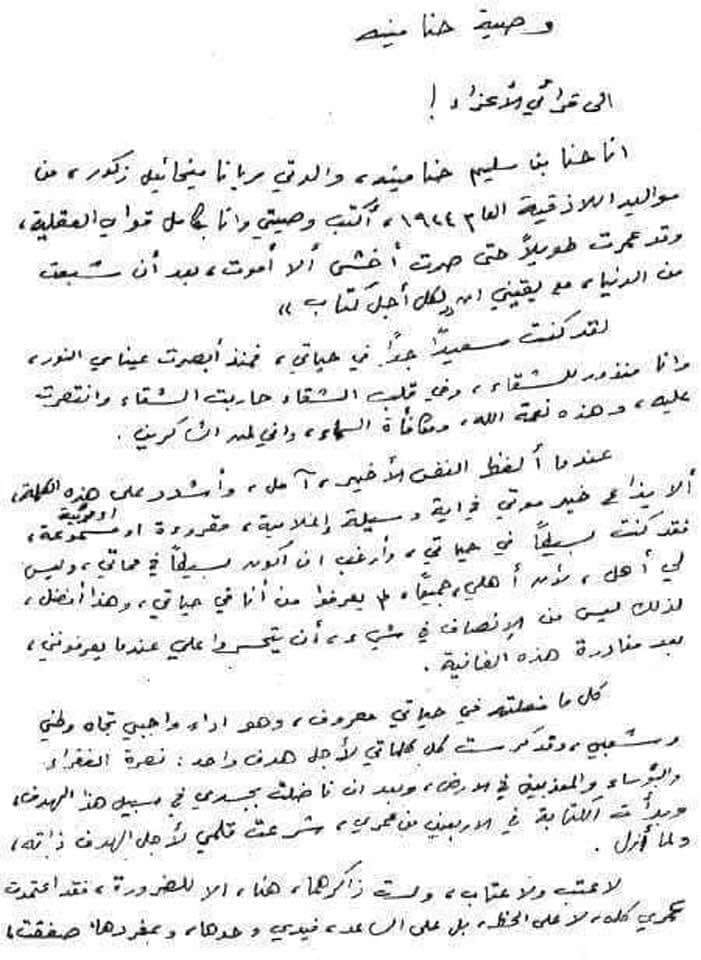 وصية حنا مينه
الى قرائي الأعزاء !
انا حنا بن سليم حنا مينه، والدتي مريانا ميخائيل زكور، من
مواليد اللاذقية العام ١٩٢٤، أكتب وصيتي وانا بكامل قواي العقلية،
وقد عمرت طويلاً حتى صرت أخشى ألا أموت، بعد أن شبعت
من الدنيا، مع يقيني انه «لكل أجل كتاب»
لقد كنت سعيداً جداً في حياتي، فمنذ أبصرت عيناي النور،
وانا منذور للشقاء، وفي قلب الشقاء حاربت الشقاء وانتصرت
عليه، وهذه نعمة الله، ومكافأة السماء، واني لمن الشاكرين.
عندما ألفظ النفس الأخير، آمل، وأشدد على هذه الكلمة،
ألا يذاع خبر موتي في اية وسيلة إعلامية، مقروءة او مسموعة، او مرئية
فقد كنت بسيطاً في حياتي، وأرغب ان أكون بسيطاً في مماتي، وليس
لي أهل، لأن أهلي، جميعاً، لم يعرفوا من أنا في حياتي، وهذا أفضل،
لذلك ليس من الإنصاف في شيء، أن يتحسروا علي عندما يعرفونني،
بعد مغادرة هذه الفانية.
كل ما فعلته في حياتي معروف، وهو اداء واجبي تجاه وطني
وشعبي، وقد كرست كل كلماتي لأجل هدف واحد: نصرة الفقراء
والبؤساء والمعذبين في الارض، وبعد ان ناضلت بجسدي في سبيل هذا الهدف،
وبدأت الكتابة في الاربعين من عمري، شرعت قلمي لأجل الهدف ذاته،
ولما أزل.
لا عتب ولا عتاب، ولست ذاكرهما، هنا، الا للضرورة، فقد اعتمدت
عمري كله، لا على الحظ، بل على الساعد، فيدي وحدها، وبمفردها، صفقت،